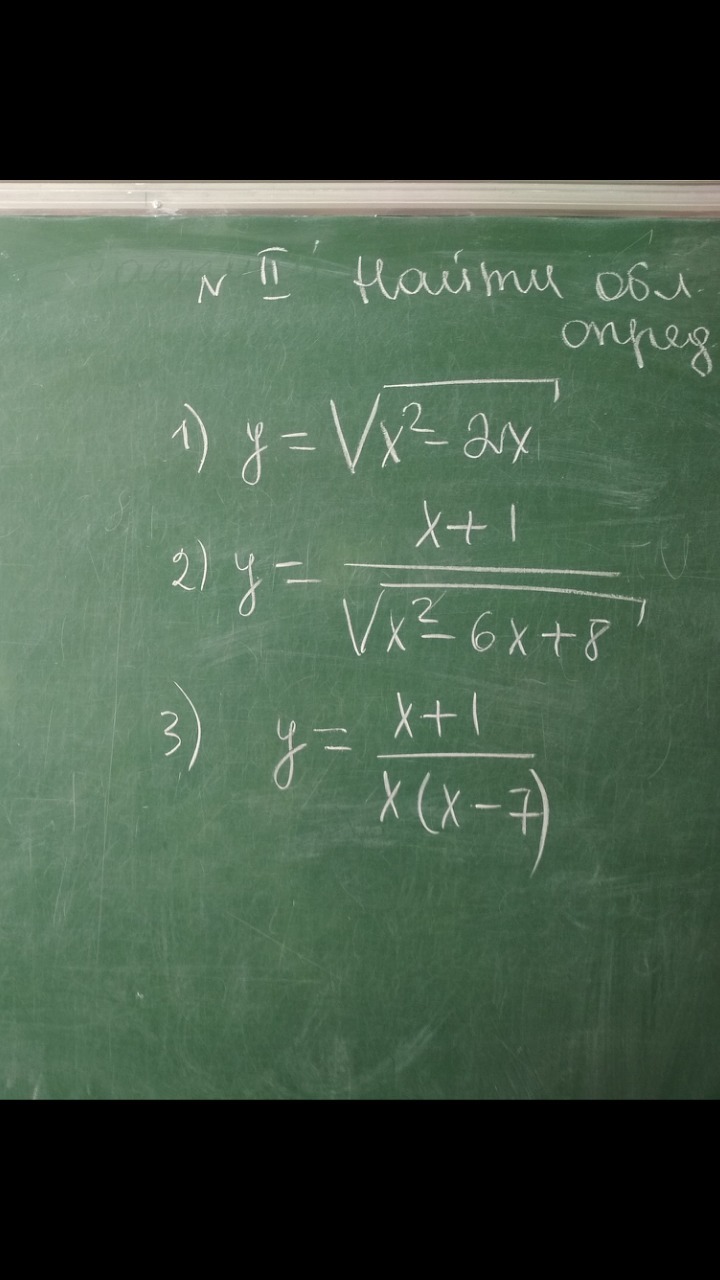 N II Найти обл.
опред
1) y = √x² - 2x
2) y = x + 1 / √x² - 6x + 8
3) y = x + 1 / x(x - 7)